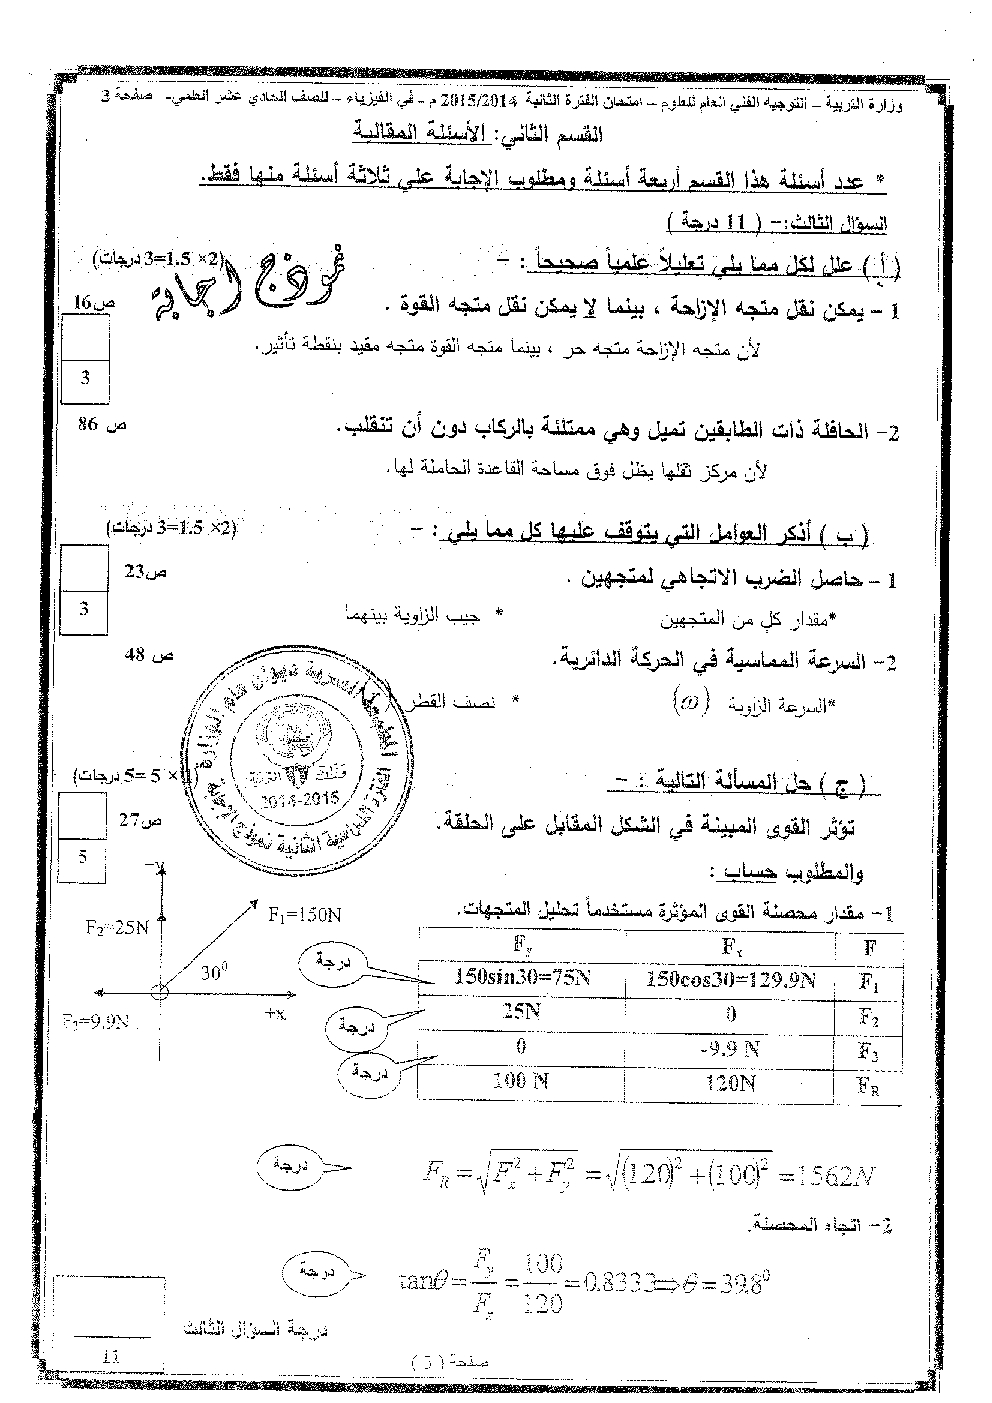 وزارة التربية – التوجيه الفني العام للعلوم – امتحان الفترة الثانية 2015/2014 م – في الفيزياء – للصف الحادي عشر العلمي- صفحة 3
القسم الثاني: الأسئلة المقالية
* عدد أسئلة هذا القسم أربعة أسئلة ومطلوب الإجابة علي ثلاثة أسئلة منها فقط.
السؤال الثالث:– ( 11 درجة )
( أ ) علل لكل مما يلي تعليلاً علمياً صحيحاً : – (2× 1.5=3 درجات)
نموذج اجابة
1 – يمكن نقل متجه الإزاحة ، بينما لا يمكن نقل متجه القوة . ص16
لأن متجه الإزاحة متجه حر ، بينما متجه القوة متجه مقيد بنقطة تأثير.
3
2– الحافلة ذات الطابقين تميل وهي ممتلئة بالركاب دون أن تنقلب. ص 86
لأن مركز ثقلها يظل فوق مساحة القاعدة الحاملة لها.
( ب ) أذكر العوامل التي يتوقف عليها كل مما يلي : – (2× 1.5=3 درجات)
1 – حاصل الضرب الاتجاهي لمتجهين . ص23
*مقدار كل من المتجهين * جيب الزاوية بينهما
3
2– السرعة المماسية في الحركة الدائرية. ص 48
*السرعة الزاوية (ω) * نصف القطر
2014-2015
( ج ) حل المسألة التالية : – (1 × 5 =5 درجات)
تؤثر القوى المبينة في الشكل المقابل على الحلقة. ص27
5
والمطلوب حساب :
1– مقدار محصلة القوى المؤثرة مستخدماً تحليل المتجهات.
–y
F₁=150N
F₂=25N
30⁰
+x
F₃=9.9N
F Fₓ Fᵧ
F₁ 150cos30=129.9N 150sin30=75N درجة
F₂ 0 25N درجة
F₃ -9.9 N 0 درجة
F_R 120N 100 N
F_R = √(Fₓ² + Fᵧ²) = √((120)² + (100)²) = 156.2N درجة
2– اتجاه المحصلة.
tanθ = Fᵧ/Fₓ = 100/120 = 0.8333 ⇒ θ = 39.8⁰ درجة
درجة السؤال الثالث
11
صفحة ( 3 )